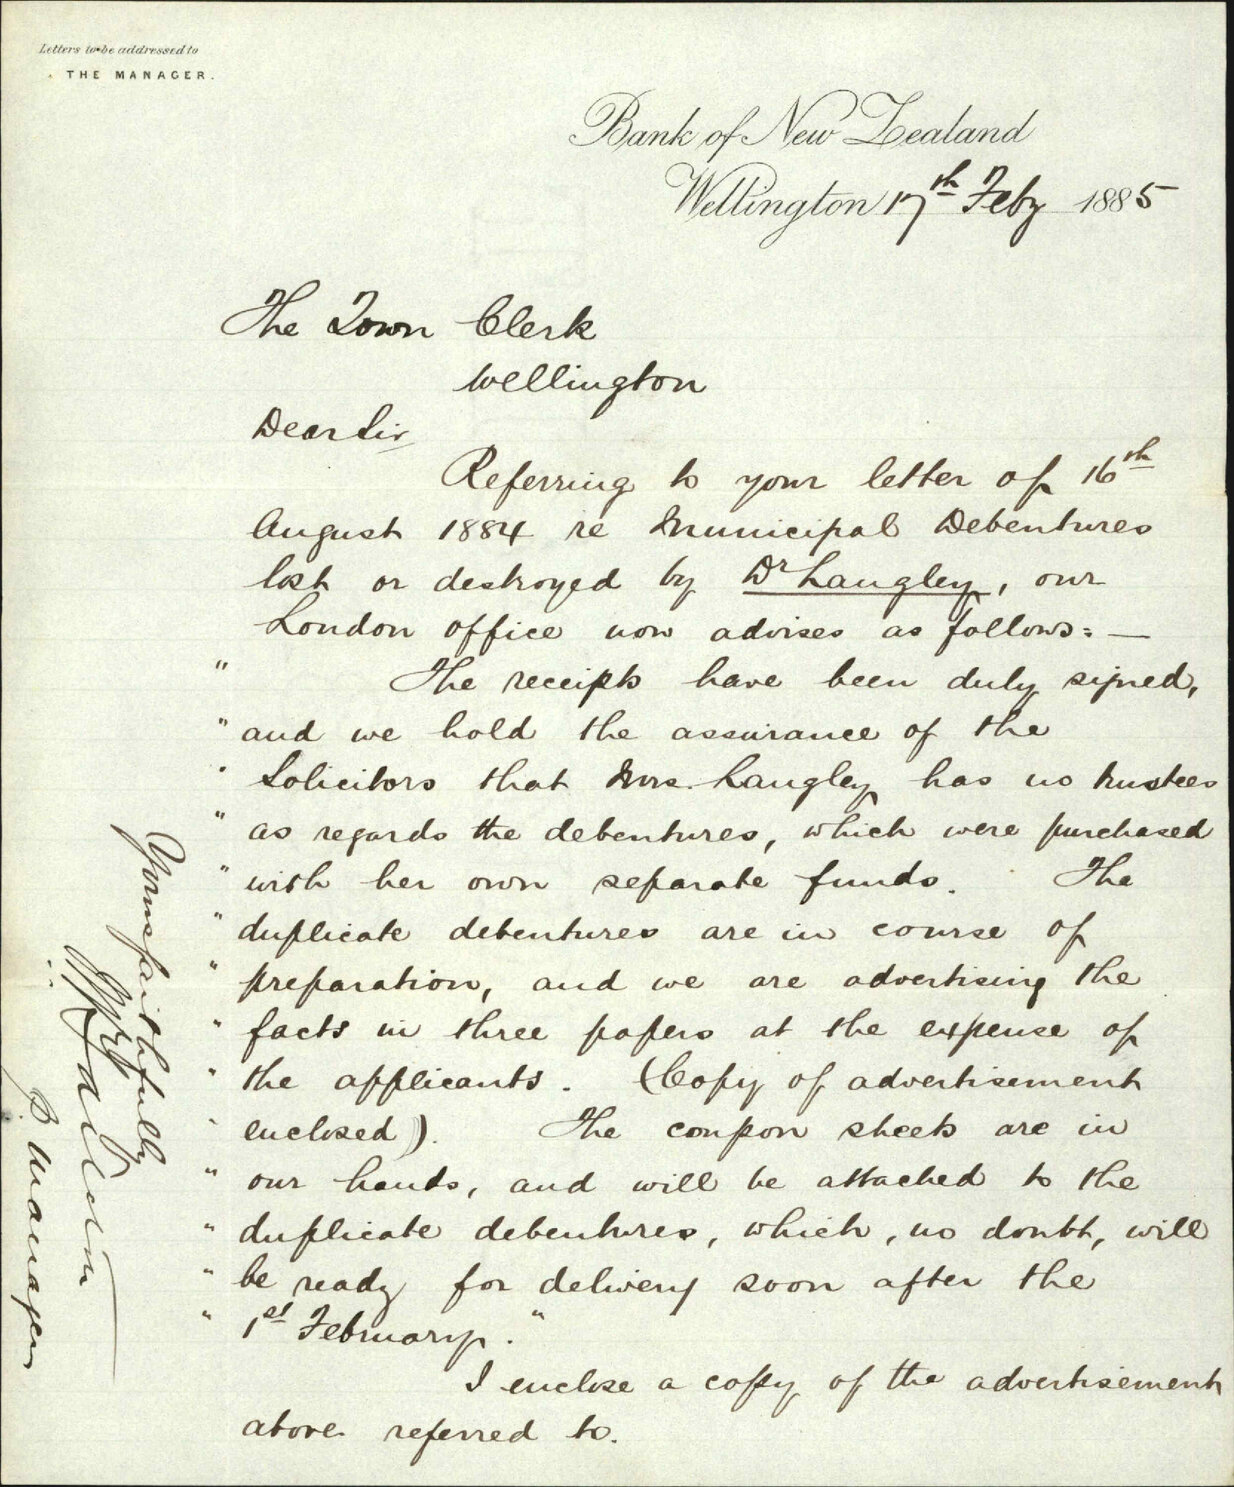 Letters to be addressed to
THE MANAGER.
Bank of New Zealand
Wellington 17th Feby 1885
The Town Clerk
Wellington
Dear Sir
Referring to your letter of 16th
August 1884 re Municipal Debentures
lost or destroyed by Dr Langley, our
London office now advises as follows:—
" The receipts have been duly signed,
" and we hold the assurance of the
" Solicitors that Mrs. Langley has no trustees
" as regards the debentures, which were purchased
" with her own separate funds. The
" duplicate debentures are in course of
" preparation, and we are advertising the
" facts in three papers at the expense of
" the applicants. (Copy of advertisement
" enclosed). The coupon sheets are in
" our hands, and will be attached to the
" duplicate debentures, which, no doubt, will
" be ready for delivery soon after the
" 1st February."
I enclose a copy of the advertisement
above referred to.
Yours faithfully
Manager